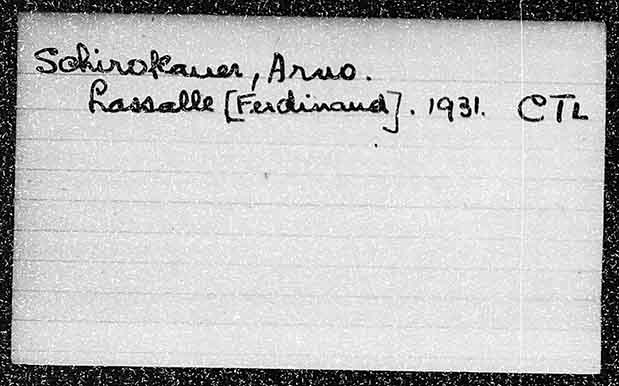 Schirokauer, Arno.
Lassalle [Ferdinand]. 1931. CTL